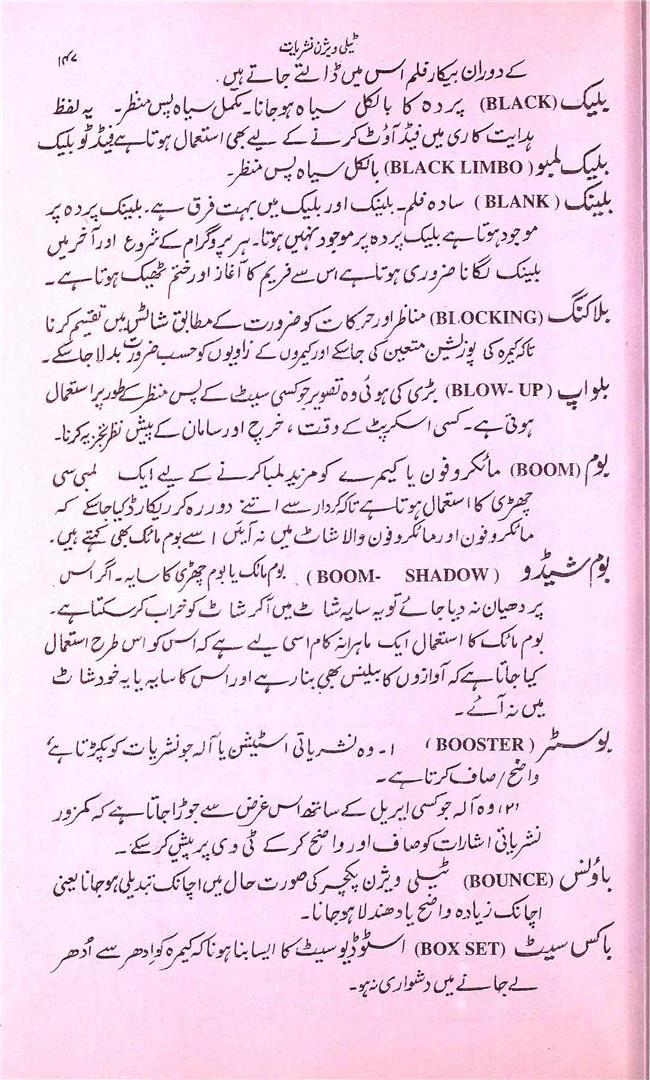 ٹیلی ویژن نشریات
۱۴۷
کے دوران بیکار فلم اس میں ڈالتے جاتے ہیں۔
بلیک (BLACK) پردہ کا بالکل سیاہ ہو جانا۔ مکمل سیاہ پس منظر۔ یہ لفظ
ہدایت کاری میں فیڈ آؤٹ کرنے کے لیے بھی استعمال ہوتا ہے فیڈ ٹو بلیک
بلیک لمبو (BLACK LIMBO) بالکل سیاہ پس منظر۔
بلینک (BLANK) سادہ فلم۔ بلینک اور بلیک میں بہت فرق ہے۔ بلینک پردہ پر
موجود ہوتا ہے بلیک پردہ پر موجود نہیں ہوتا۔ ہر پروگرام کے شروع اور آخر میں
بلینک لگانا ضروری ہوتا ہے اس سے فریم کا آغاز اور ختم ٹھیک ہوتا ہے۔
بلاکنگ (BLOCKING) مناظر اور حرکات کو ضرورت کے مطابق شاٹس میں تقسیم کرنا
تاکہ کیمرہ کی پوزیشن متعین کی جاسکے اور کیمروں کے زاویوں کو حسب ضرورت بدلا جاسکے۔
بلو اپ (BLOW- UP) بڑی کی ہوئی وہ تصویر جو کسی سیٹ کے پس منظر کے طور پر استعمال
ہوتی ہے۔ کسی اسکرپٹ کے دقت، خرچ اور سامان کے پیش نظر تجزیہ کرنا۔
بوم (BOOM) مائکروفون یا کیمرے کو مزید لمبا کرنے کے لیے ایک لمبی سی
چھڑی کا استعمال ہوتا ہے تاکہ کردار سے اتنے دور رہ کر ریکارڈ کیا جاسکے کہ
مائکروفون اور مائکروفون والا شاٹ میں نہ آئیں اسے بوم مائک بھی کہتے ہیں۔
بوم شیڈو (BOOM- SHADOW) بوم مائک یا بوم چھڑی کا سایہ۔ اگر اس
پر دھیان نہ دیا جائے تو یہ سایہ شاٹ میں آکر شاٹ کو خراب کر سکتا ہے۔
بوم مائک کا استعمال ایک ماہرانہ کام اسی لیے ہے کہ اس کو اس طرح استعمال
کیا جاتا ہے کہ آوازوں کا بیلنس بھی بنا رہے اور اس کا سایہ یا یہ خود شاٹ
میں نہ آئے۔
بوسٹر (BOOSTER) ۱۔ وہ نشریاتی اسٹیشن یا آلہ جو نشریات کو پکڑتا ہے
واضح/صاف کرتا ہے۔
(۲) وہ آلہ جو کسی ایریل کے ساتھ اس غرض سے جوڑا جاتا ہے کہ کمزور
نشریاتی اشارات کو صاف اور واضح کر کے ٹی وی پر پیش کر سکے۔
باؤنس (BOUNCE) ٹیلی ویژن پکچر کی صورت حال میں اچانک تبدیلی ہو جانا یعنی
اچانک زیادہ واضح یا دھندلا ہو جانا۔
باکس سیٹ (BOX SET) اسٹوڈیو سیٹ کا ایسا بنا ہونا کہ کیمرہ کو ادھر سے اُدھر
لے جانے میں دشواری نہ ہو۔